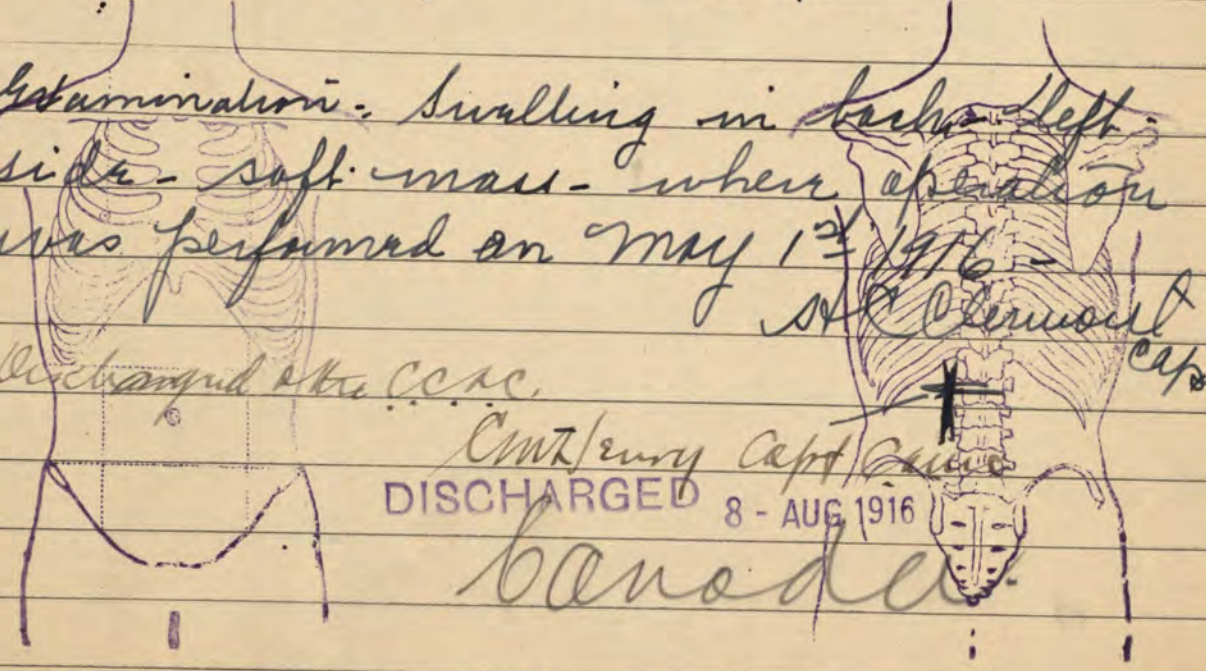 Examination. Swelling in back - left
side - soft mass - where operation
was performed on May 1st 1916 -
Clermont
Capt
Discharged C.C.A.C.
Capt
DISCHARGED 8 - AUG 1916
Canada